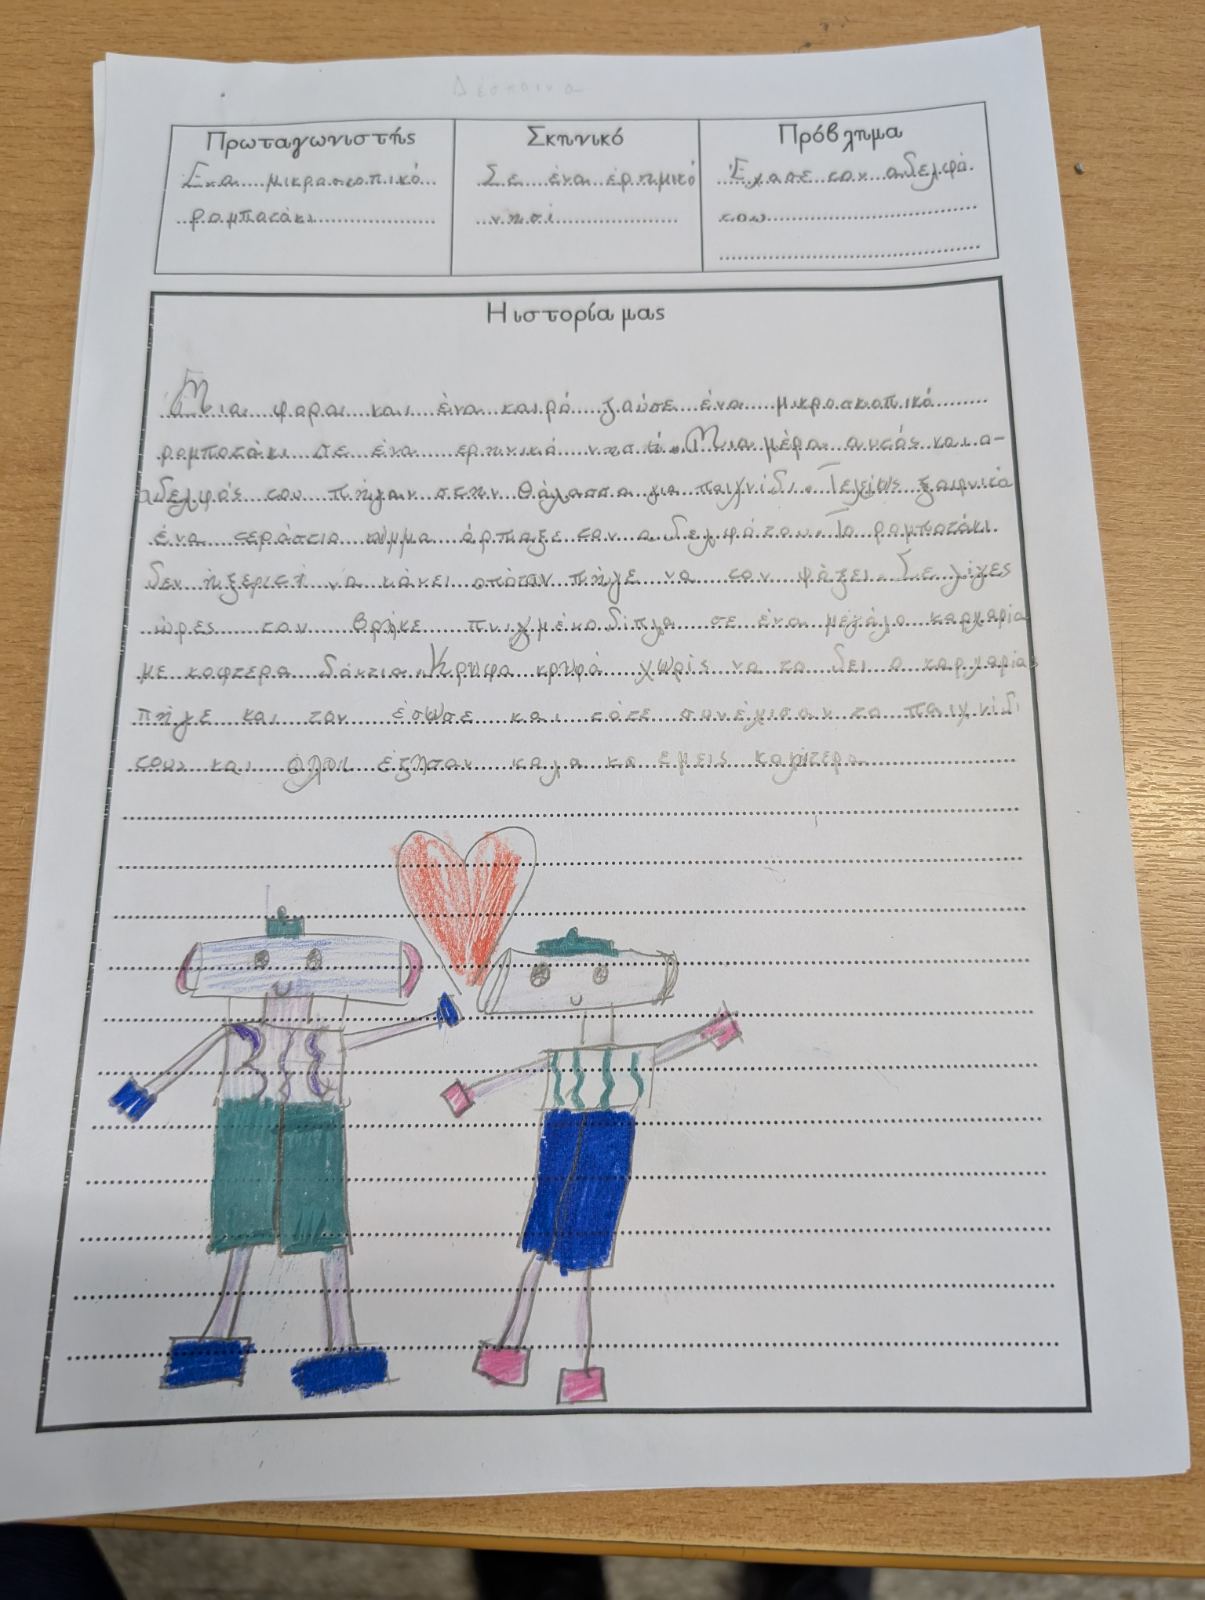 Δέσποινα
Πρωταγωνιστής
Ένα μικροσκοπικό
ρομποτάκι
Σκηνικό
Σε ένα έρημικό
νησί
Πρόβλημα
Έχασε τον αδελφό
του
Η ιστορία μας
Μια φορα και ένα καιρό ζούσε ένα μικροσκοπικό
ρομποτάκι σε ένα ερημικό νησί. Μια μέρα αυτός και ο
αδελφός του πήγαν στην θάλασσα για παιχνίδι. Τελείως ξαφνικά
ένα τεράστιο κύμμα άρπαξε τον αδελφό του. Το ρομποτάκι
δεν ήξερε τί να κάνει οπόταν πήγε να τον ψάξει. Σε λίγες
ώρες τον βρήκε πνιχμένο δίπλα σε ένα μεγάλο καρχαρία
με κοφτερα δόντια. Κρυφα κρυφά χωρίς να το δει ο καρχαρίας
πήγε και τον έσωσε και τότε συνέχισαν το παιχνίδι
τους και όλοι έζησαν καλα κα εμείς καλήτερα